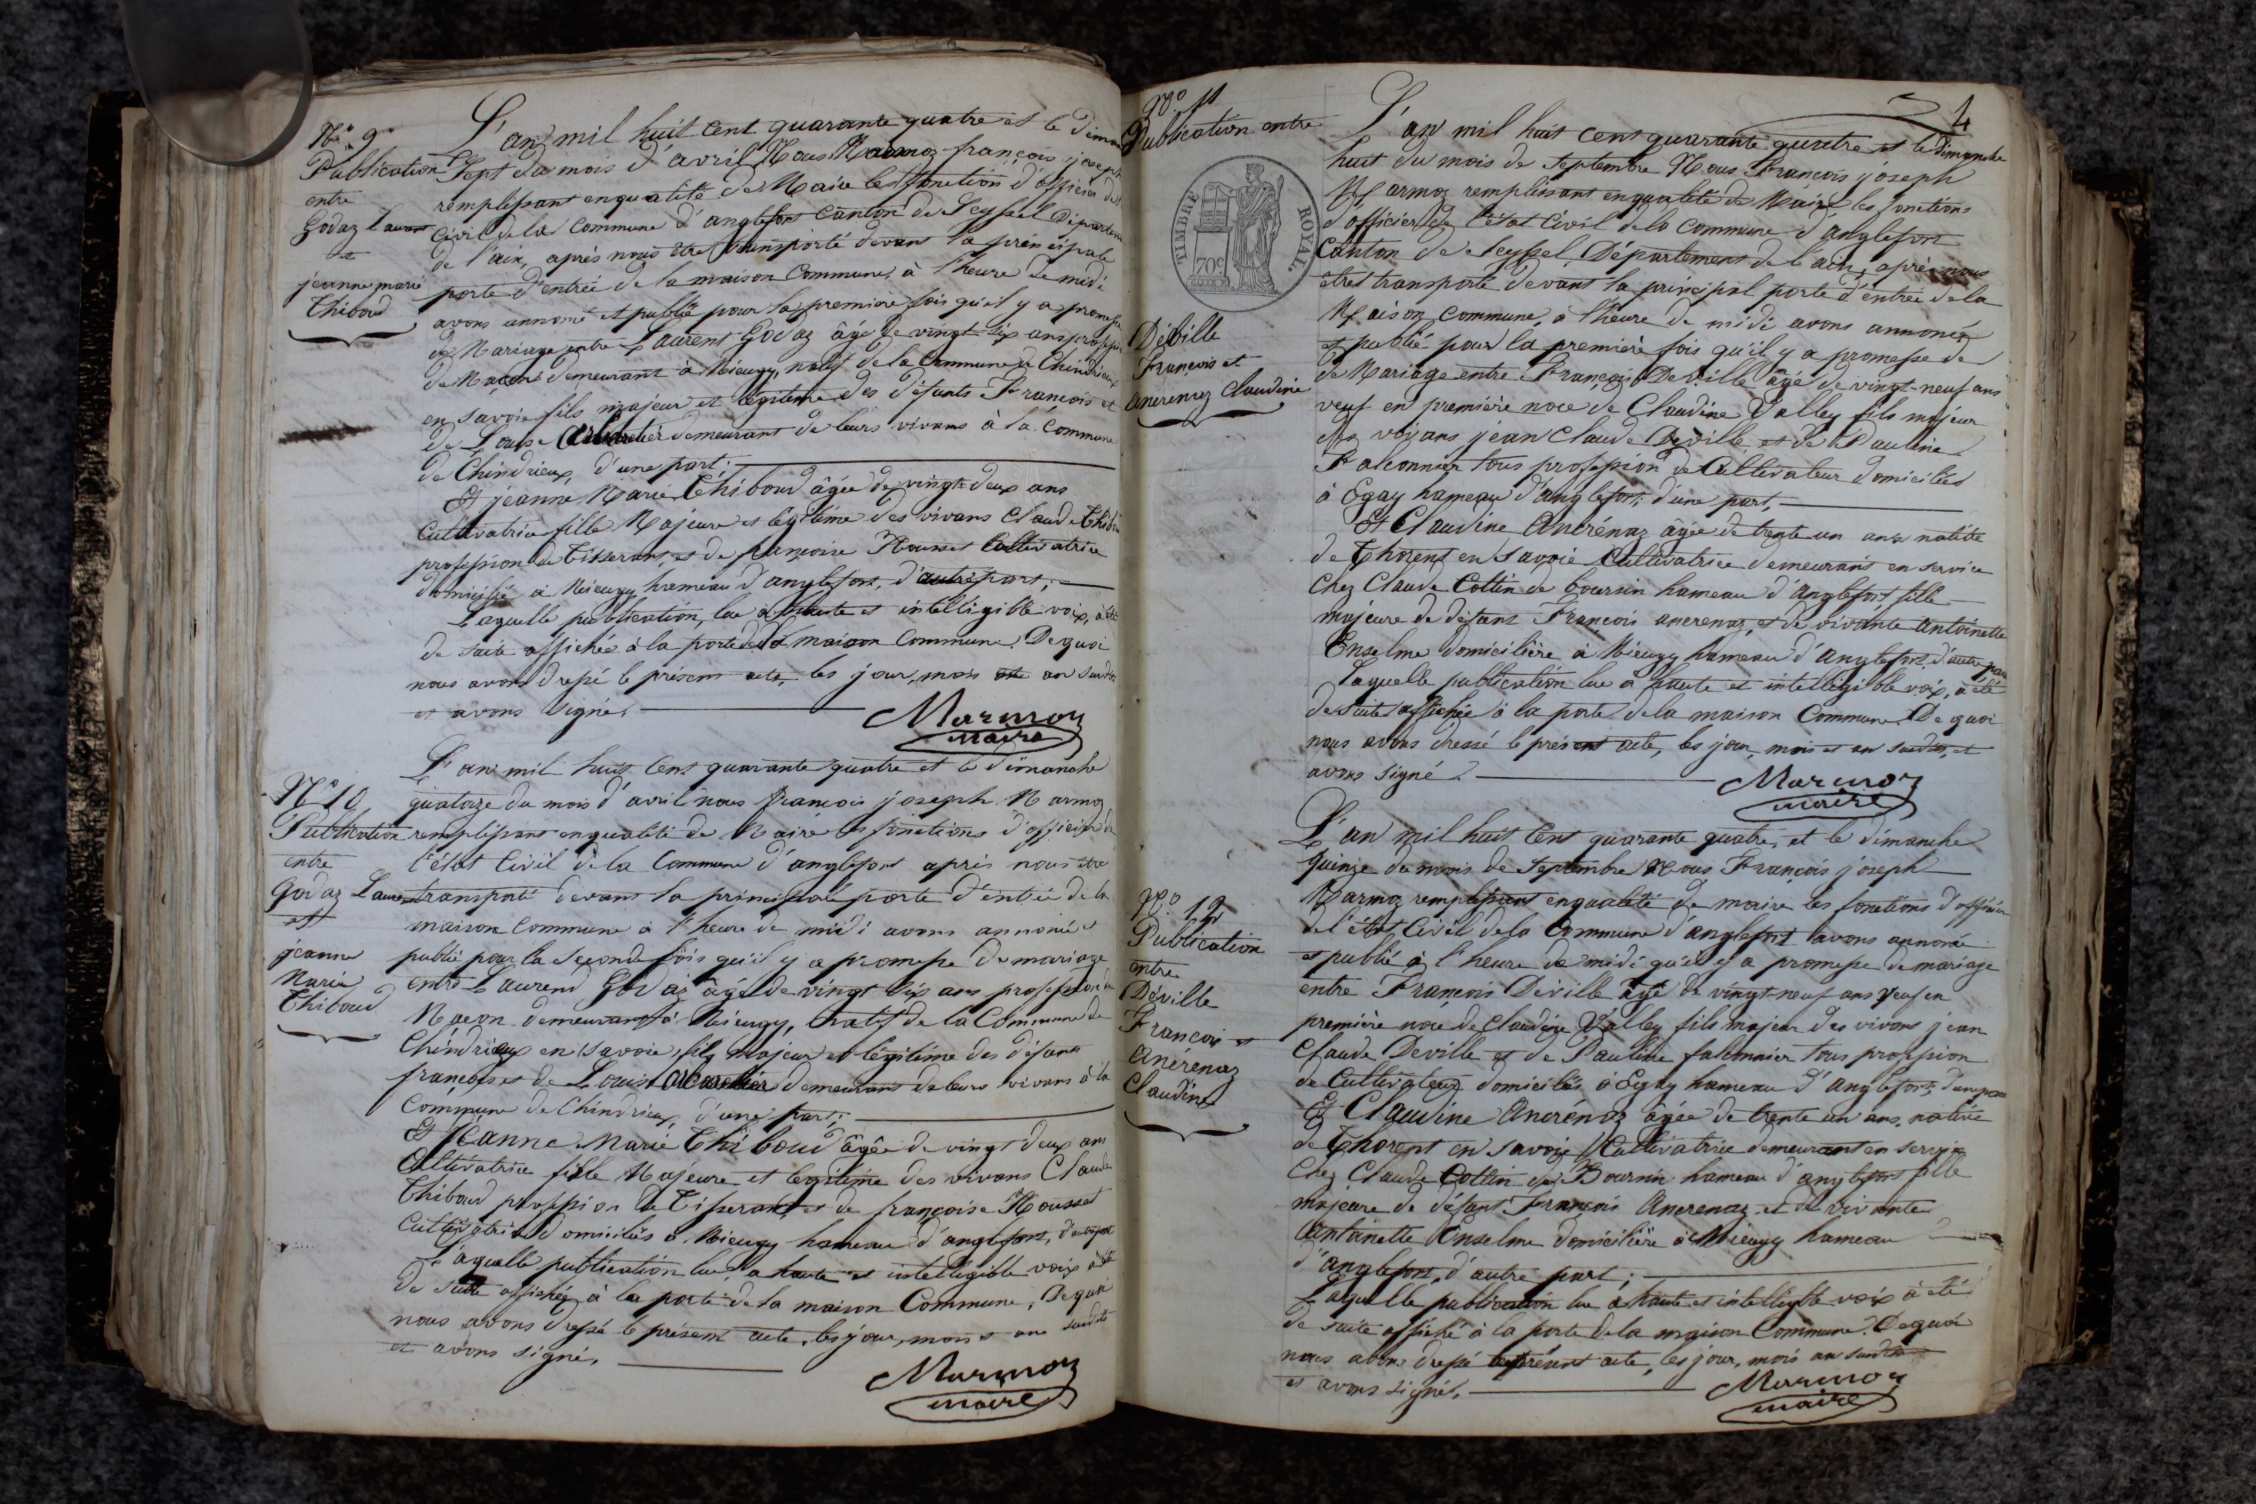 N.° 9.
Publication
entre
Godaz Laurent
et
jeanne marie
Thiboud
L'an mil huit cent quarante quatre et le diman
Sept du mois d'avril Nous Marmoz françois joseph
remplissant en qualité de Maire les fonction d'officier de
Civil de la Commune d'anglefort Canton de Seyssel Départem
de l'ain, après nous être transporté devant la principale
porte d'entrée de la maison Commune, à l'heure de midi
avons annoncé et publié pour la premiere fois qu'il y a promesse
de Mariage entre Laurent Godaz âgé de vingt six ans profession
de Maçon demeurant à Mieugy, natif de la Commune de Chindrieux
en savoie fils majeur et légitime des défunts François et
de Louise demeurant de leurs vivans à la Commune
de Chindrieux, d'une part;
Et jeanne Marie Thiboud âgée de vingt deux ans
Cultivatrice fille Majeure et légitime des vivans Claude Thiboud
profession de Tisserant, et de françoise Rousset Cultivatrice
domicilié à Mieugy hameau d'anglefort, d'autre part;
Laquelle publication, lue à haute et intelligible voix, a été
de suite affichée à la porte de la maison Commune. De quoi
nous avons dressé le présent acte, les jour, mois et an susdits
et avons signé.
Marmoz
maire
N.° 10
Publication
entre
Godaz Laurent
et
jeanne
Marie
Thiboud
L'an mil huit Cent quarante quatre et le dimanche
quatorze du mois d'avril nous françois joseph Marmoz
remplissant en qualité de Maire les fonctions d'officier de
l'état Civil de la Commune d'anglefort après nous être
transporté devant la principale porte d'entrée de la
maison Commune à l'heure de midi avons annoncé et
publié pour la seconde fois qu'il y a promesse de mariage
entre Laurend Godaz âgé de vingt six ans profession de
Macon demeurant à Mieugy, natif de la Commune de
Chindrieux en savoie fils Majeur et légitime des défunts
françois et de Louise demeurant de leurs vivans à la
Commune de Chindrieux, d'une part;
Et Jeanne Marie Thiboud âgée de vingt deux ans
Cultivatrice fille Majeure et légitime des vivans Claude
Thiboud profession de Tisserant et de françoise Rousset
Cultivatrice domiciliés à Mieugy hameau d'anglefort, d'autre part
Laquelle publication lue, à haute et intelligible voix a été
de suite affichée à la porte de la maison Commune, De quoi
nous avons dressé le présent acte, les jour, mois et an susdits
et avons signé.
Marmoz
maire
4
N.° 11
Publication entre
TIMBRE ROYAL.
70c
Déville
François et
ancrenaz Claudine
L'an mil huit cent quarante quatre et le dimanche
huit du mois de septembre Nous François joseph
Marmoz remplissant en qualité de Maire les fonctions
d'officier de l'état Civil de la Commune d'anglefort
Canton de Seyssel, Département de l'ain, après nous
être transporté devant la principal porte d'entrée de la
Maison Commune, à l'heure de midi avons annoncé
et publié pour la première fois qu'il y a promesse de
de Mariage entre François Deville âgé de vingt-neuf ans
veuf en première noce de Claudine Valley fils majeur
des vivans jean Claude Deville et de Pauline
Falconnier tous profession de Cultivateur domiciliés
à Egay hameau d'anglefort, d'une part,
Et Claudine Ancrénaz âgée de trente un ans native
de Thorent en savoie Cultivatrice demeurant en service
Chez Claude Cottin de boursin hameau d'Anglefort fille
majeure de défunt François ancrenaz, et de vivante antoinette
Enselme domicilière à Mieugy hameau d'Anglefort, d'autre part
Laquelle publication lue à haute et intelligible voix, a été
de suite affichée à la porte de la maison Commune. De quoi
nous avons dressé le présent acte, les jour, mois et an susdits, et
avons signé.
Marmoz
maire
N.° 12
Publication
entre
Déville
François et
Ancrénaz
Claudine
L'an mil huit Cent quarante quatre, et le dimanche
quinze du mois de septembre Nous François joseph
Marmoz remplissant en qualité de maire les fonctions d'officier
de l'état Civil de la Commune d'anglefort avons annoncé
et publié à l'heure de midi qu'il y a promesse de mariage
entre François Deville âgé de vingt-neuf ans veuf en
première noce de claudine Valley fils majeur des vivans jean
Claude Deville et de Pauline falconnier tous profession
de Cultivateur domiciliés à Egay hameau d'Anglefort, d'une part
Et Claudine Ancrénaz âgée de trente un ans, native
de Thorent en savoie Cultivatrice demeurant en service
Chez Claude Cottin de Boursin hameau d'anglefort fille
majeure de défunt François Ancrenaz et de vivante
antoinette Enselme domicilière à Mieugy hameau
d'anglefort, d'autre part;
Laquelle publication lue à haute et intelligible voix a été
de suite affiché à la porte de la maison Commune. De quoi
nous avons dressé le présent acte, les jour, mois an susdits
et avons signé.
Marmoz
maire